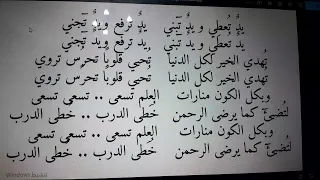 يدٌ تُعطي ويدٌ تَبني يدٌ ترفع ويدٌ تَجني
يدٌ تُعطي ويدٌ تَبني يدٌ ترفع ويدٌ تَجني
تُهدي الخير لكل الدنيا تُحيي قلوباً تحرس تروي
تُهدي الخير لكل الدنيا تُحيي قلوباً تحرس تروي
وبكل الكون منارات العِلم تسعى .. تسعى تسعى
لتُضيئَ كما يرضى الرحمن خُطى الدرب .. خُطى الدرب
وبكل الكون منارات العِلم تسعى .. تسعى تسعى
لتُضيئَ كما يرضى الرحمن خُطى الدرب .. خُطى الدرب